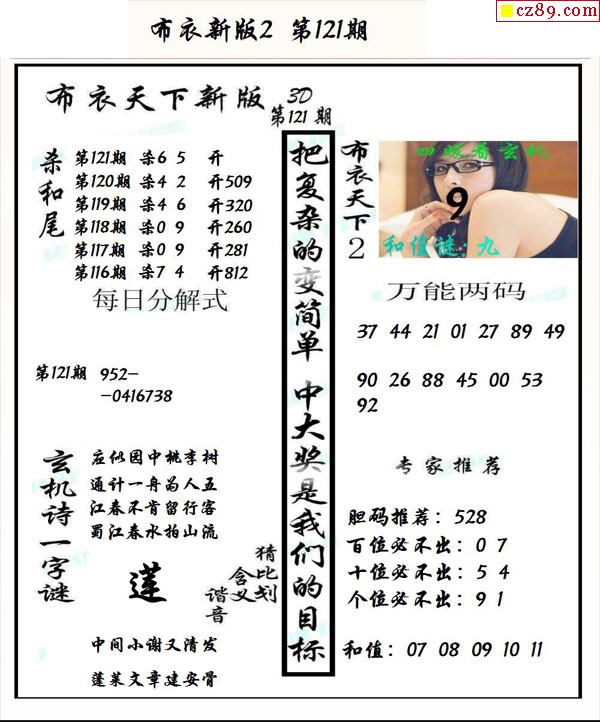 cz89.com
布衣新版2 第121期
布衣天下新版 3D
第121期
杀和尾
第121期 杀6 5 开
第120期 杀4 2 开509
第119期 杀4 6 开320
第118期 杀0 9 开260
第117期 杀0 9 开281
第116期 杀7 4 开812
每日分解式
第121期 952-
-0416738
玄机诗一字谜
应似园中桃李树
通计一舟为人五
江春不肯留行客
蜀江春水拍山流
莲
猜比划
含义
谐音
中间小谢又清发
蓬莱文章建安骨
把复杂的变简单 中大奖是我们的目标
布衣天下2
四眼看玄机
9
和值谜:九
万能两码
37 44 21 01 27 89 49
90 26 88 45 00 53
92
专家推荐
胆码推荐: 528
百位必不出: 0 7
十位必不出: 5 4
个位必不出: 9 1
和值: 07 08 09 10 11